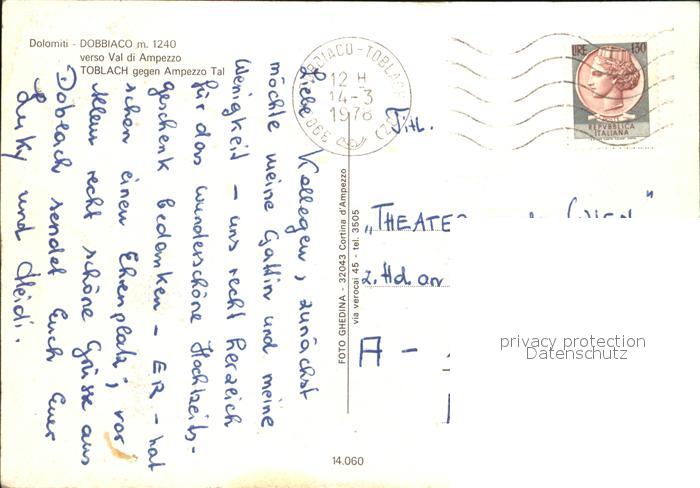 Dolomiti - DOBBIACO m. 1240
verso Val di Ampezzo
TOBLACH gegen Ampezzo Tal
DOBBIACO - TOBLACH
12 H
14-3
1978
390 (BZ)
LIRE 130
REPVBBLICA
ITALIANA
Liebe Kollegen, zunächst
möchte meine Gattin und meine
Wenigkeit - uns recht herzlich
für das wunderschöne Hochzeits-
geschenk bedanken - ER - hat
schon einen Ehrenplatz; vor
allem recht schöne Grüsse aus
Toblach sendet Euch Euer
Luky und Heidi.
FOTO GHEDINA - 32043 Cortina d'Ampezzo
via verocai 45 - tel. 3505
Titl.
„THEATER WIEN"
z.Hd.
A -
privacy protection
Datenschutz
14.060